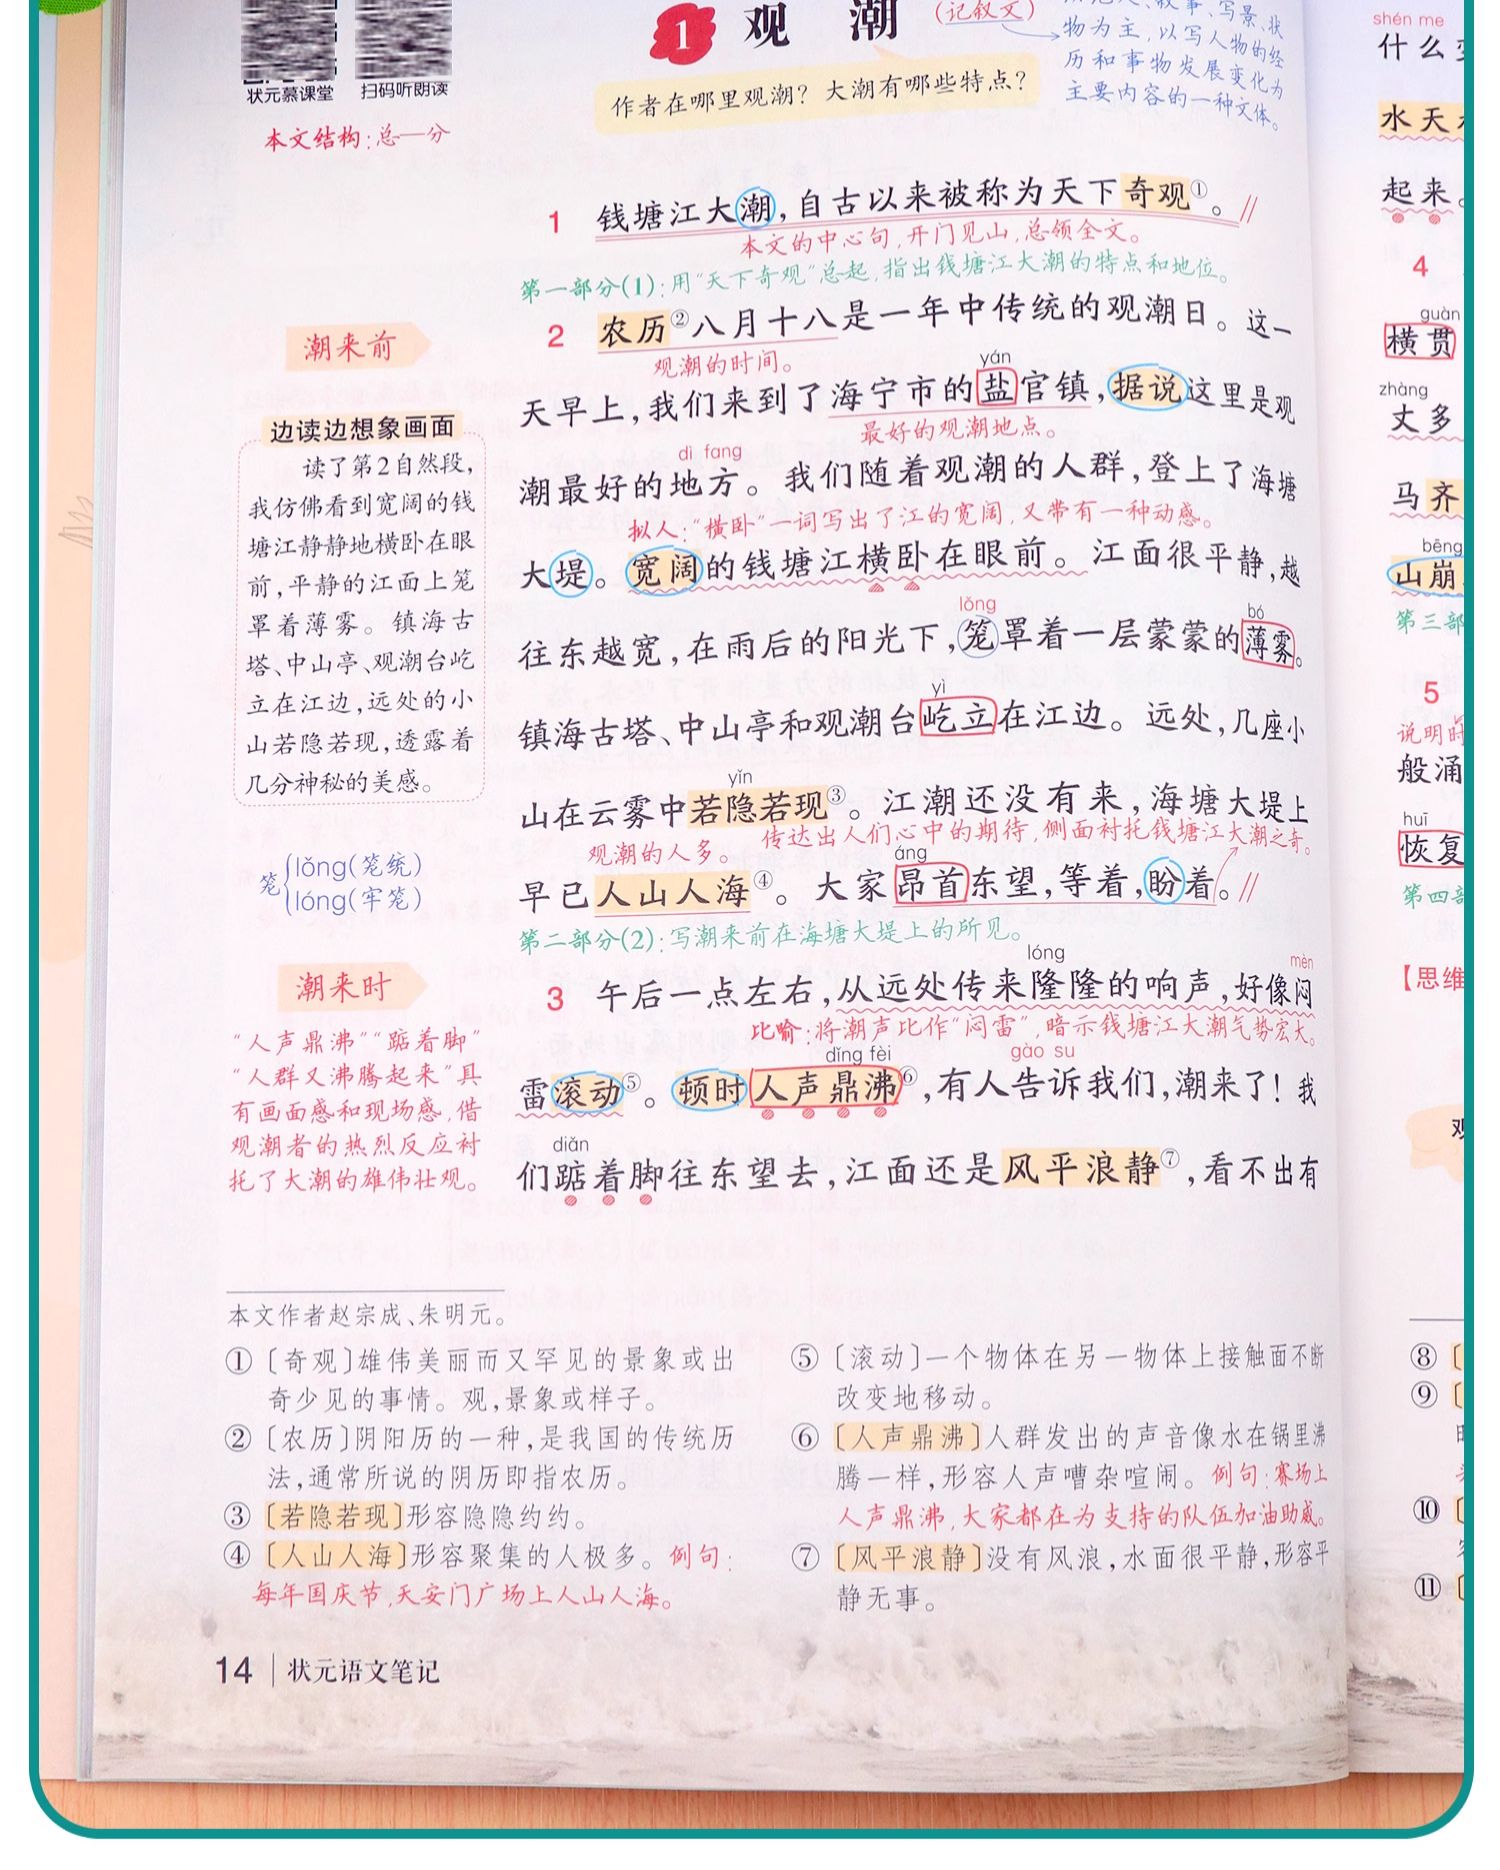 状元慕课堂 扫码听朗读
本文结构：总—分
1 观 潮 （记叙文）
物为主，以写人物的经
历和事物发展变化为
主要内容的一种文体。
作者在哪里观潮？大潮有哪些特点？
1 钱塘江大潮，自古以来被称为天下奇观①。//
本文的中心句，开门见山，总领全文。
第一部分(1)：用“天下奇观”总起，指出钱塘江大潮的特点和地位。
2 农历②八月十八是一年中传统的观潮日。这一
观潮的时间。
yán
天早上，我们来到了海宁市的盐官镇，据说这里是观
最好的观潮地点。
dì fang
潮最好的地方。我们随着观潮的人群，登上了海塘
拟人：“横卧”一词写出了江的宽阔，又带有一种动感。
大堤。宽阔的钱塘江横卧在眼前。江面很平静，越
lǒng bó
往东越宽，在雨后的阳光下，笼罩着一层蒙蒙的薄雾。
yì
镇海古塔、中山亭和观潮台屹立在江边。远处，几座小
yǐn
山在云雾中若隐若现③。江潮还没有来，海塘大堤上
传达出人们心中的期待，侧面衬托钱塘江大潮之奇。
观潮的人多。
áng
早已人山人海④。大家昂首东望，等着，盼着。//
第二部分(2)：写潮来前在海塘大堤上的所见。
lóng mèn
3 午后一点左右，从远处传来隆隆的响声，好像闷
比喻：将潮声比作“闷雷”，暗示钱塘江大潮气势宏大。
dǐng fèi gào su
雷滚动⑤。顿时人声鼎沸⑥，有人告诉我们，潮来了！我
diǎn
们踮着脚往东望去，江面还是风平浪静⑦，看不出有
潮来前
边读边想象画面
读了第2自然段，
我仿佛看到宽阔的钱
塘江静静地横卧在眼
前，平静的江面上笼
罩着薄雾。镇海古
塔、中山亭、观潮台屹
立在江边，远处的小
山若隐若现，透露着
几分神秘的美感。
笼 lǒng(笼统)
lóng(牢笼)
潮来时
“人声鼎沸”“踮着脚”
“人群又沸腾起来”具
有画面感和现场感，借
观潮者的热烈反应衬
托了大潮的雄伟壮观。
本文作者赵宗成、朱明元。
①〔奇观〕雄伟美丽而又罕见的景象或出
奇少见的事情。观，景象或样子。
②〔农历〕阴阳历的一种，是我国的传统历
法，通常所说的阴历即指农历。
③〔若隐若现〕形容隐隐约约。
④〔人山人海〕形容聚集的人极多。例句：
每年国庆节，天安门广场上人山人海。
⑤〔滚动〕一个物体在另一物体上接触面不断
改变地移动。
⑥〔人声鼎沸〕人群发出的声音像水在锅里沸
腾一样，形容人声嘈杂喧闹。例句：赛场上
人声鼎沸，大家都在为支持的队伍加油助威。
⑦〔风平浪静〕没有风浪，水面很平静，形容平
静无事。
14 状元语文笔记
shén me
什么
水天
起来。
4
guàn
横贯
zhàng
丈多
马齐
bēng
山崩
第三部
5
说明时
般涌
huī
恢复
第四部
【思维
观
⑧
⑨
⑩
⑪